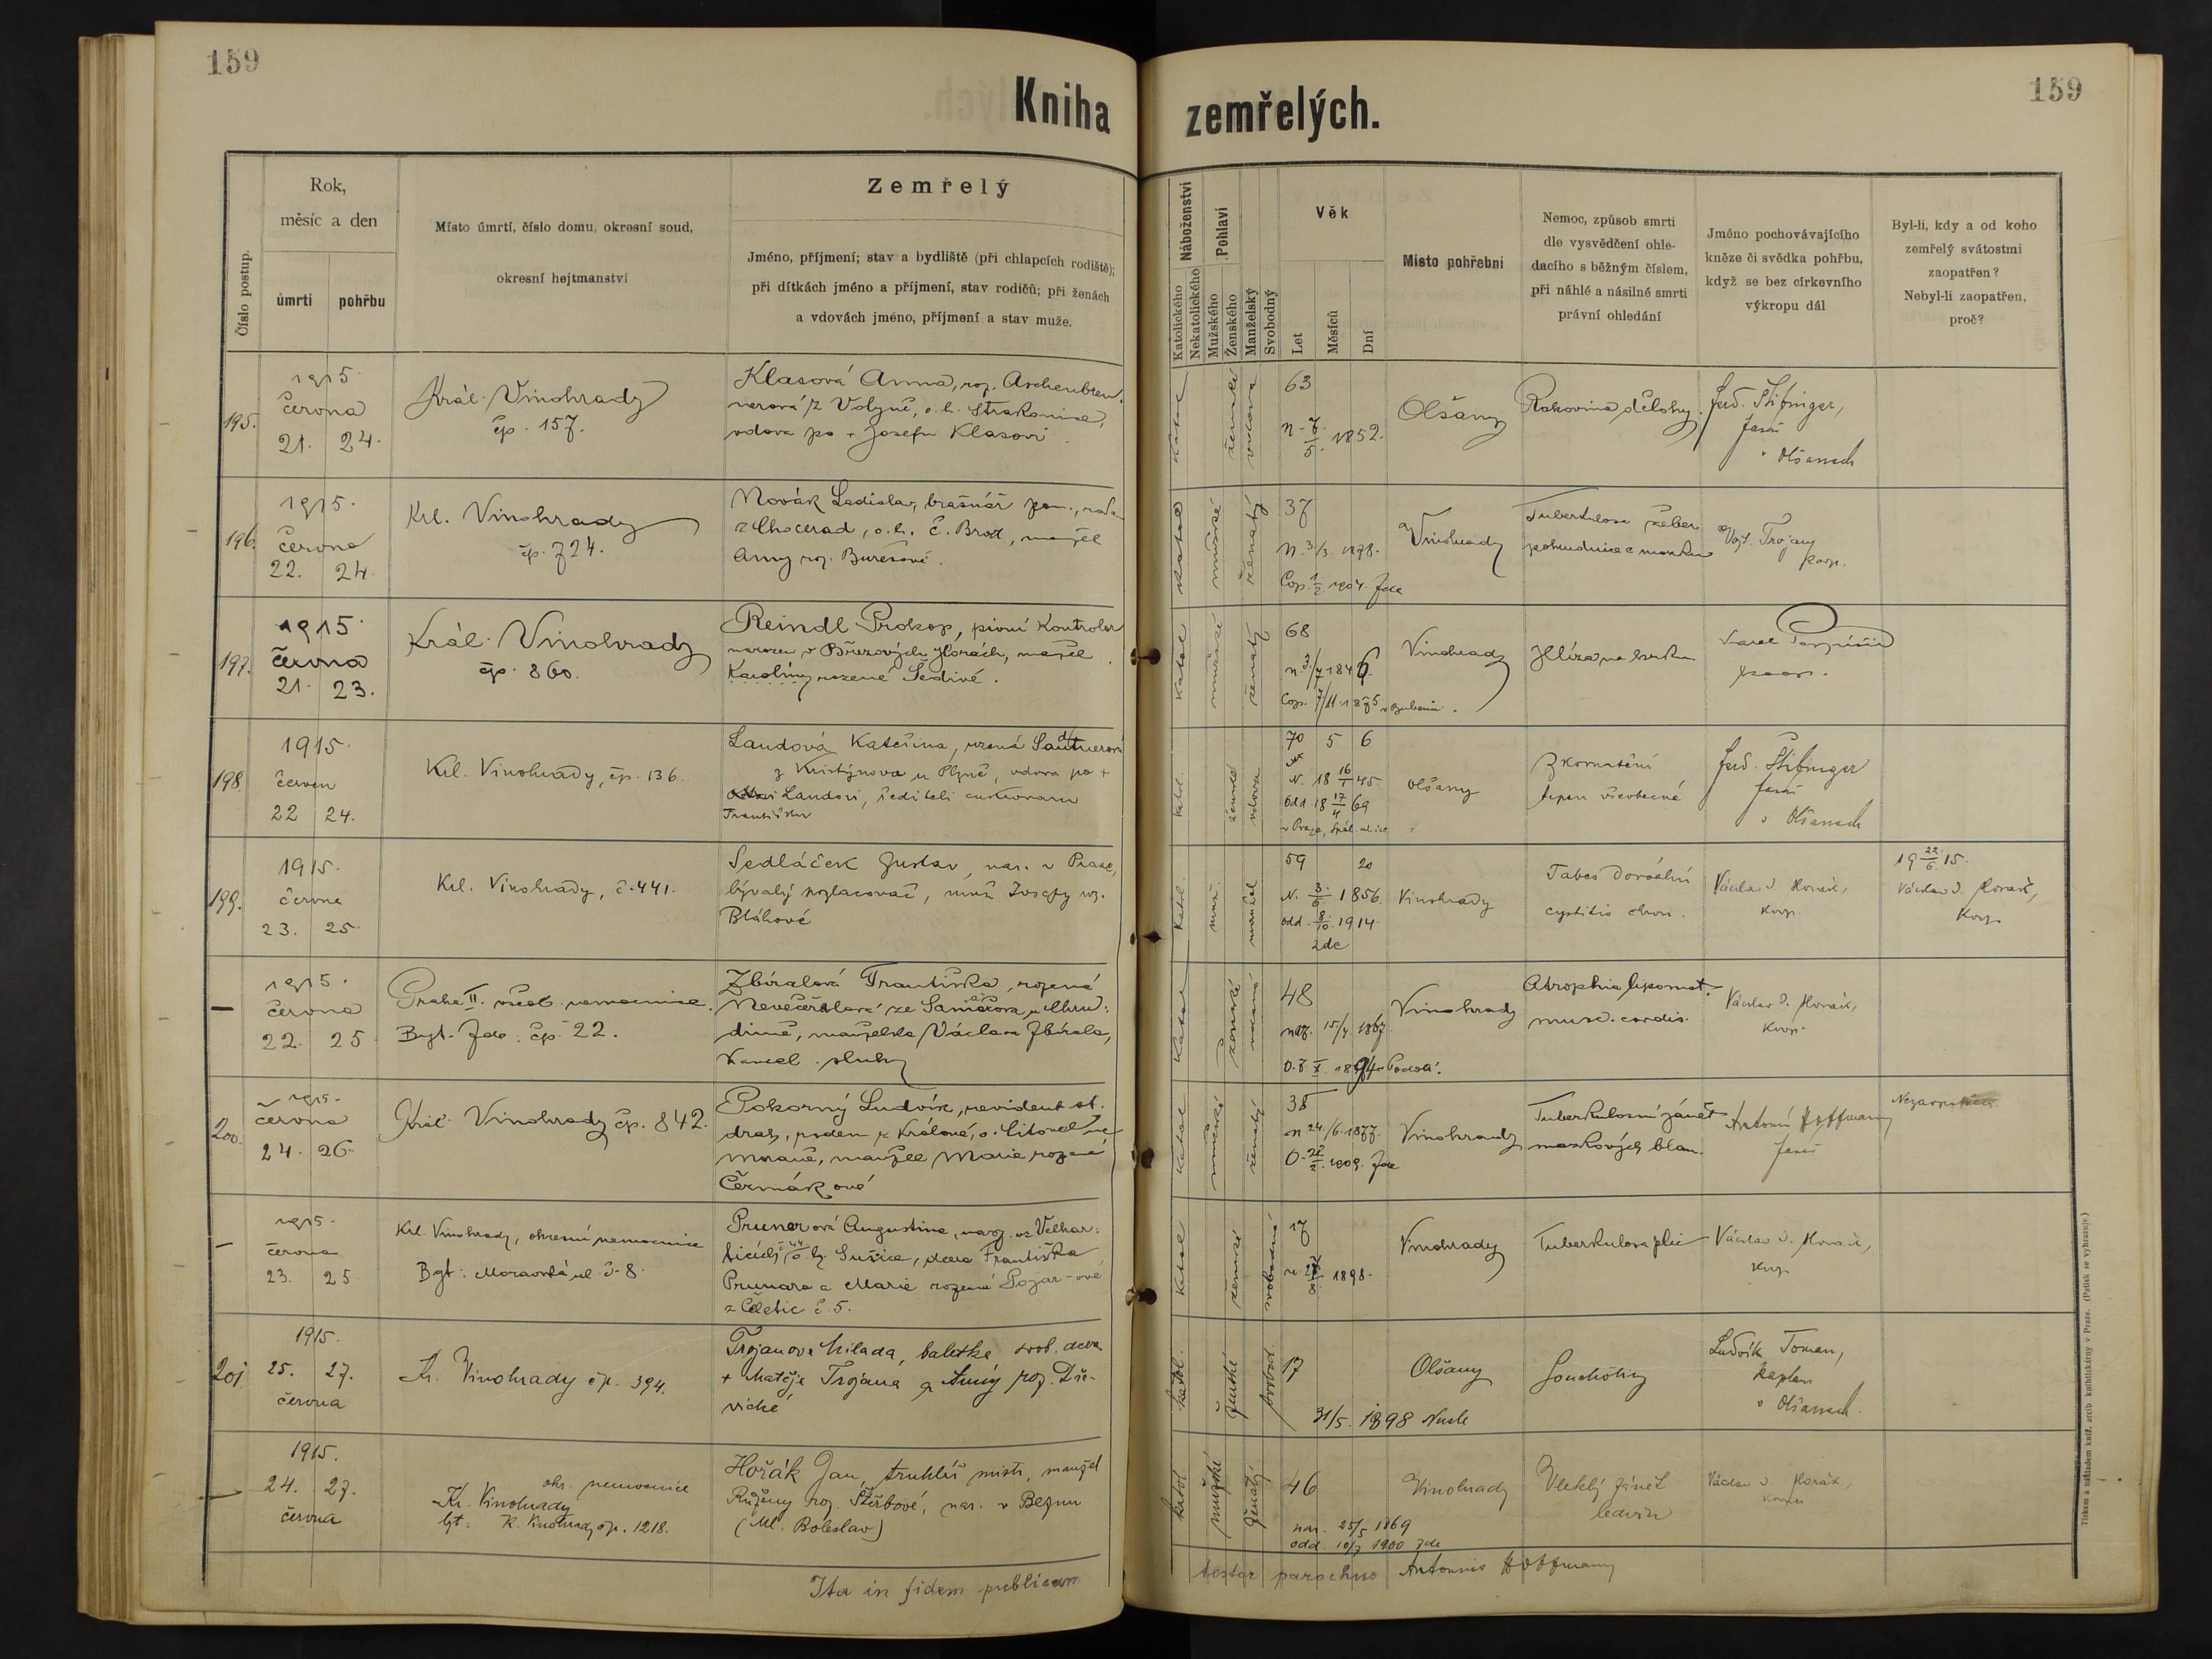 159
159
Kniha zemřelých.
Číslo postup.
Rok,
měsíc a den
úmrtí
pohřbu
Místo úmrtí, číslo domu, okresní soud,
okresní hejtmanství
Zemřelý
Jméno, příjmení; stav a bydliště (při chlapcích rodiště);
při dítkách jméno a příjmení, stav rodičů; při ženách
a vdovách jméno, příjmení a stav muže.
Náboženství
Katolického
Nekatolického
Pohlaví
Mužského
Ženského
Manželský
Svobodný
Věk
Let
Měsíců
Dní
Místo pohřební
Nemoc, způsob smrti
dle vysvědčení ohle-
dacího s běžným číslem,
při náhlé a násilné smrti
právní ohledání
Jméno pochovávajícího
kněze či svědka pohřbu,
když se bez církevního
výkropu dál
Byl-li, kdy a od koho
zemřelý svátostmi
zaopatřen?
Nebyl-li zaopatřen,
proč?
195.
1915
června
21. 24.
Král. Vinohrady
čp. 157.
Klasová Anna, roz. Aschenbren-
nerová z Volyně, o. h. Strakonice,
vdova po + Josefu Klasovi
katol
ženské
vdova
63
n. 7/5. 1852.
Olšany
Rakovina dělohy.
Ferd. Stibinger,
farář
v Olšanech
196.
1915.
června
22. 24.
Krl. Vinohrady
čp. 724.
Novák Ladislav, brašnář pom., rodem
z Chocerad, o. h. Č. Brod, manžel
Anny roz. Burešové.
katol
mužské
ženatý
37
n. 3/3. 1878.
Cop. 1/2 1904. Zde
Vinohrady
Tuberkulosa žeber
pohrudnice a mozku
Vojt. Trojan
koop.
197.
1915
června
21. 23.
Král. Vinohrady
čp. 860.
Reindl Prokop, pivní kontrolor
narozen v Březových Horách, manžel
Karolíny rozené Šedivé.
katol
mužské
ženatý
68
n. 3/7 1846
Cop. 7/11 1875 v Bubenči.
Vinohrady
Hlíza na krku
Karel
koop.
198
1915.
červen
22 24.
Krl. Vinohrady, čp. 136.
Laudová Kateřina, rozená
z Kristýnova u Plzně, vdova po +
Laudovi, řediteli cukrovaru
Františku
katol.
ženské
vdova
70 5 6
N. 18 16/1 45.
Odd. 18 17/4 69
v Praze, Spál. ulice
Olšany
Zkornatění
tepen všeobecné
Ferd. Stibinger
farář
v Olšanech
199.
1915.
června
23. 25.
Krl. Vinohrady, č. 441.
Sedláček Gustav, nar. v Praze,
bývalý pozlacovač, muž Josefy roz.
Bláhové
Katol.
muž.
manžel
59 20
N. 3/6. 1856.
odd. 8/10. 1914
zde
Vinohrady
Tabes dorsální
cystitis chron.
Václav J. Horák,
koop.
19 22/6 15.
Václav J. Horák,
Koop.
—
1915.
června
22. 25
Praha II. všeob. nemocnice.
Byt. Zde čp. 22.
Zbíralová Františka, rozená
ze Samařova u Chru-
dimě, manželka Václava Zbírala,
kancel. sluhy
katol
ženské
48
nar. 15/4. 1867
O. 7/X 1894 Podolí.
Vinohrady
Atrophia lipomat.
musc. cordis.
Václav J. Horák,
koop.
200.
1915.
června
24. 26.
Král. Vinohrady čp. 842.
Pokorný Ludvík, revident st.
drah, rodem z Králové, o. Litovel na
Moravě, manžel Marie rozené
Čermákové
katol
mužské
ženatý
38
n. 24./6. 1877.
O. 22/2. 1909. Zde
Vinohrady
Tuberkulosní zánět
mozkových blan.
Antonín Hoffmann
farář
—
1915.
června
23. 25
Krl. Vinohrady, okresní nemocnice
Byt: Moravská ul. č. 8.
Prunerová Augustina, naroz. ve Velhar-
ticích č. 44 o. h. Sušice, dcera Františka
Prunara a Marie rozené
z č. 5.
katol
ženské
svobodná
17
1898.
Vinohrady
Tuberkulosa plic
Václav J. Horák,
koop.
201
1915.
25. 27.
června
Kr. Vinohrady čp. 394.
Trojanová Milada, baletka svob. dcera
+ Matěje Trojana a Anny roz. Dře-
vické
katol.
ženské
svobod.
17
31/5. 1898 Nusle
Olšany
Souchotiny
Ludvík Toman,
kaplan
v Olšanech.
—
1915.
24. 27.
června
okr. nemocnice
Kr. Vinohrady
byt: K. Vinohrady čp. 1218.
Hořák Jan, truhlář. mistr, manžel
Růženy roz. Štěrbové, nar. v Bezně
(Ml. Boleslav)
katol.
mužské
ženatý
46
nar. 25/5 1869
odd. 10/7 1900 zde
Vinohrady
Vleklý zánět
ledvin
Václav J. Horák,
Ita in fidem publicam
testor parochus Antonius Hoffmann
Tiskem a nákladem kníž. arcib. knihtiskárny v Praze. (Patisk se vyhrazuje.)